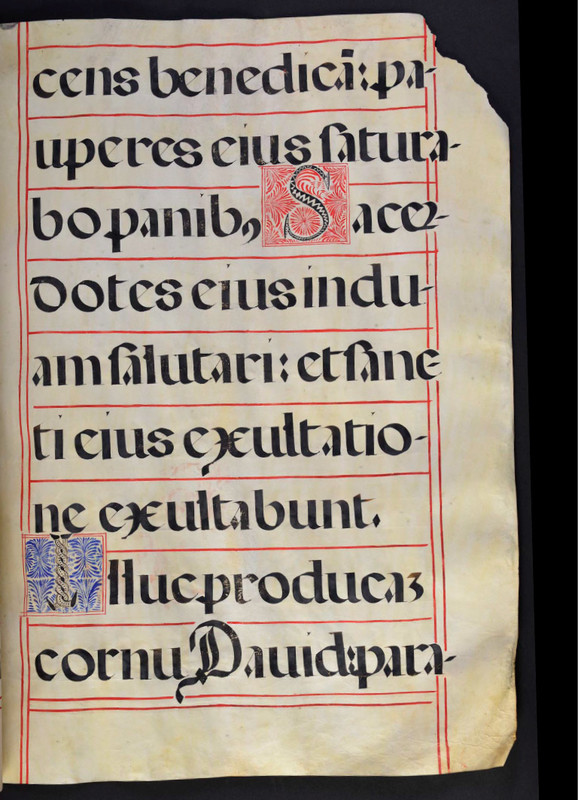 cens benedicā: pa-
uperes eius ſatura-
bo panib, Sacer-
dotes eius indu-
am ſalutari: et ſanc
ti eius exultatio-
ne exultabunt.
Illuc producaʒ
cornu Dauid: para-